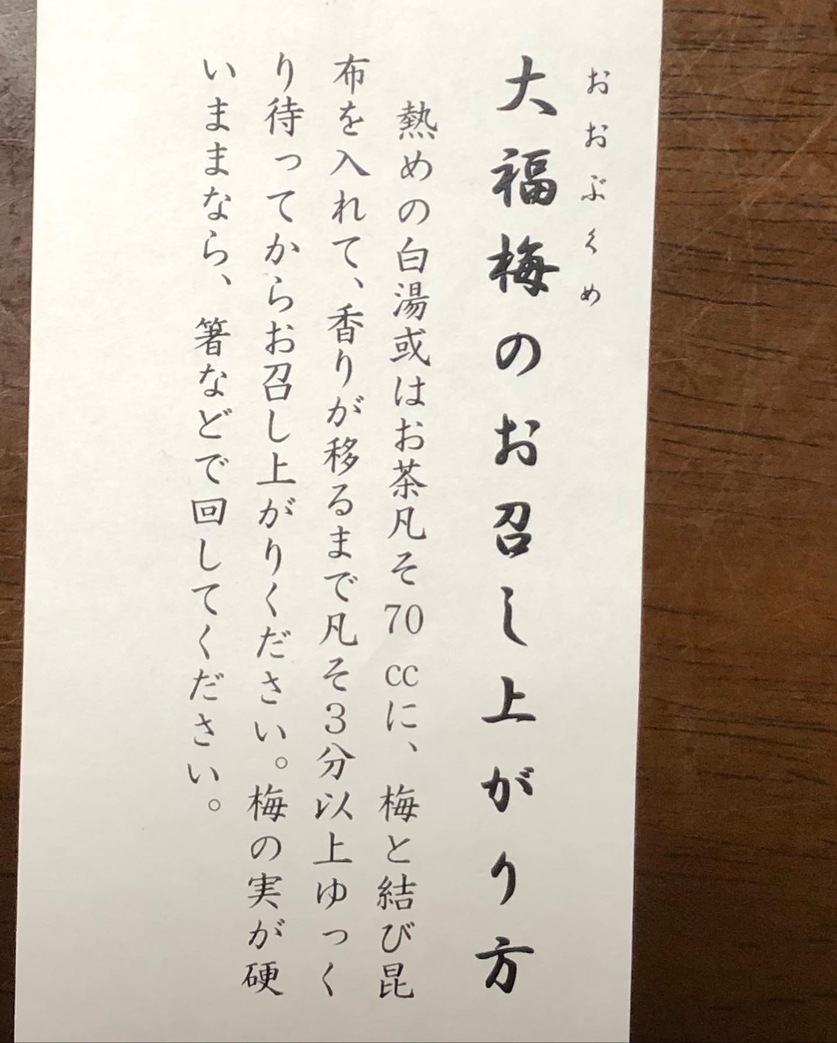 おおぶくめ
大福梅のお召し上がり方
熱めの白湯或はお茶凡そ70ccに、梅と結び昆
布を入れて、香りが移るまで凡そ3分以上ゆっく
り待ってからお召し上がりください。梅の実が硬
いままなら、箸などで回してください。